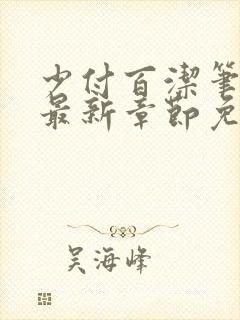 少付百潔筆
最新章節免
吴海峰